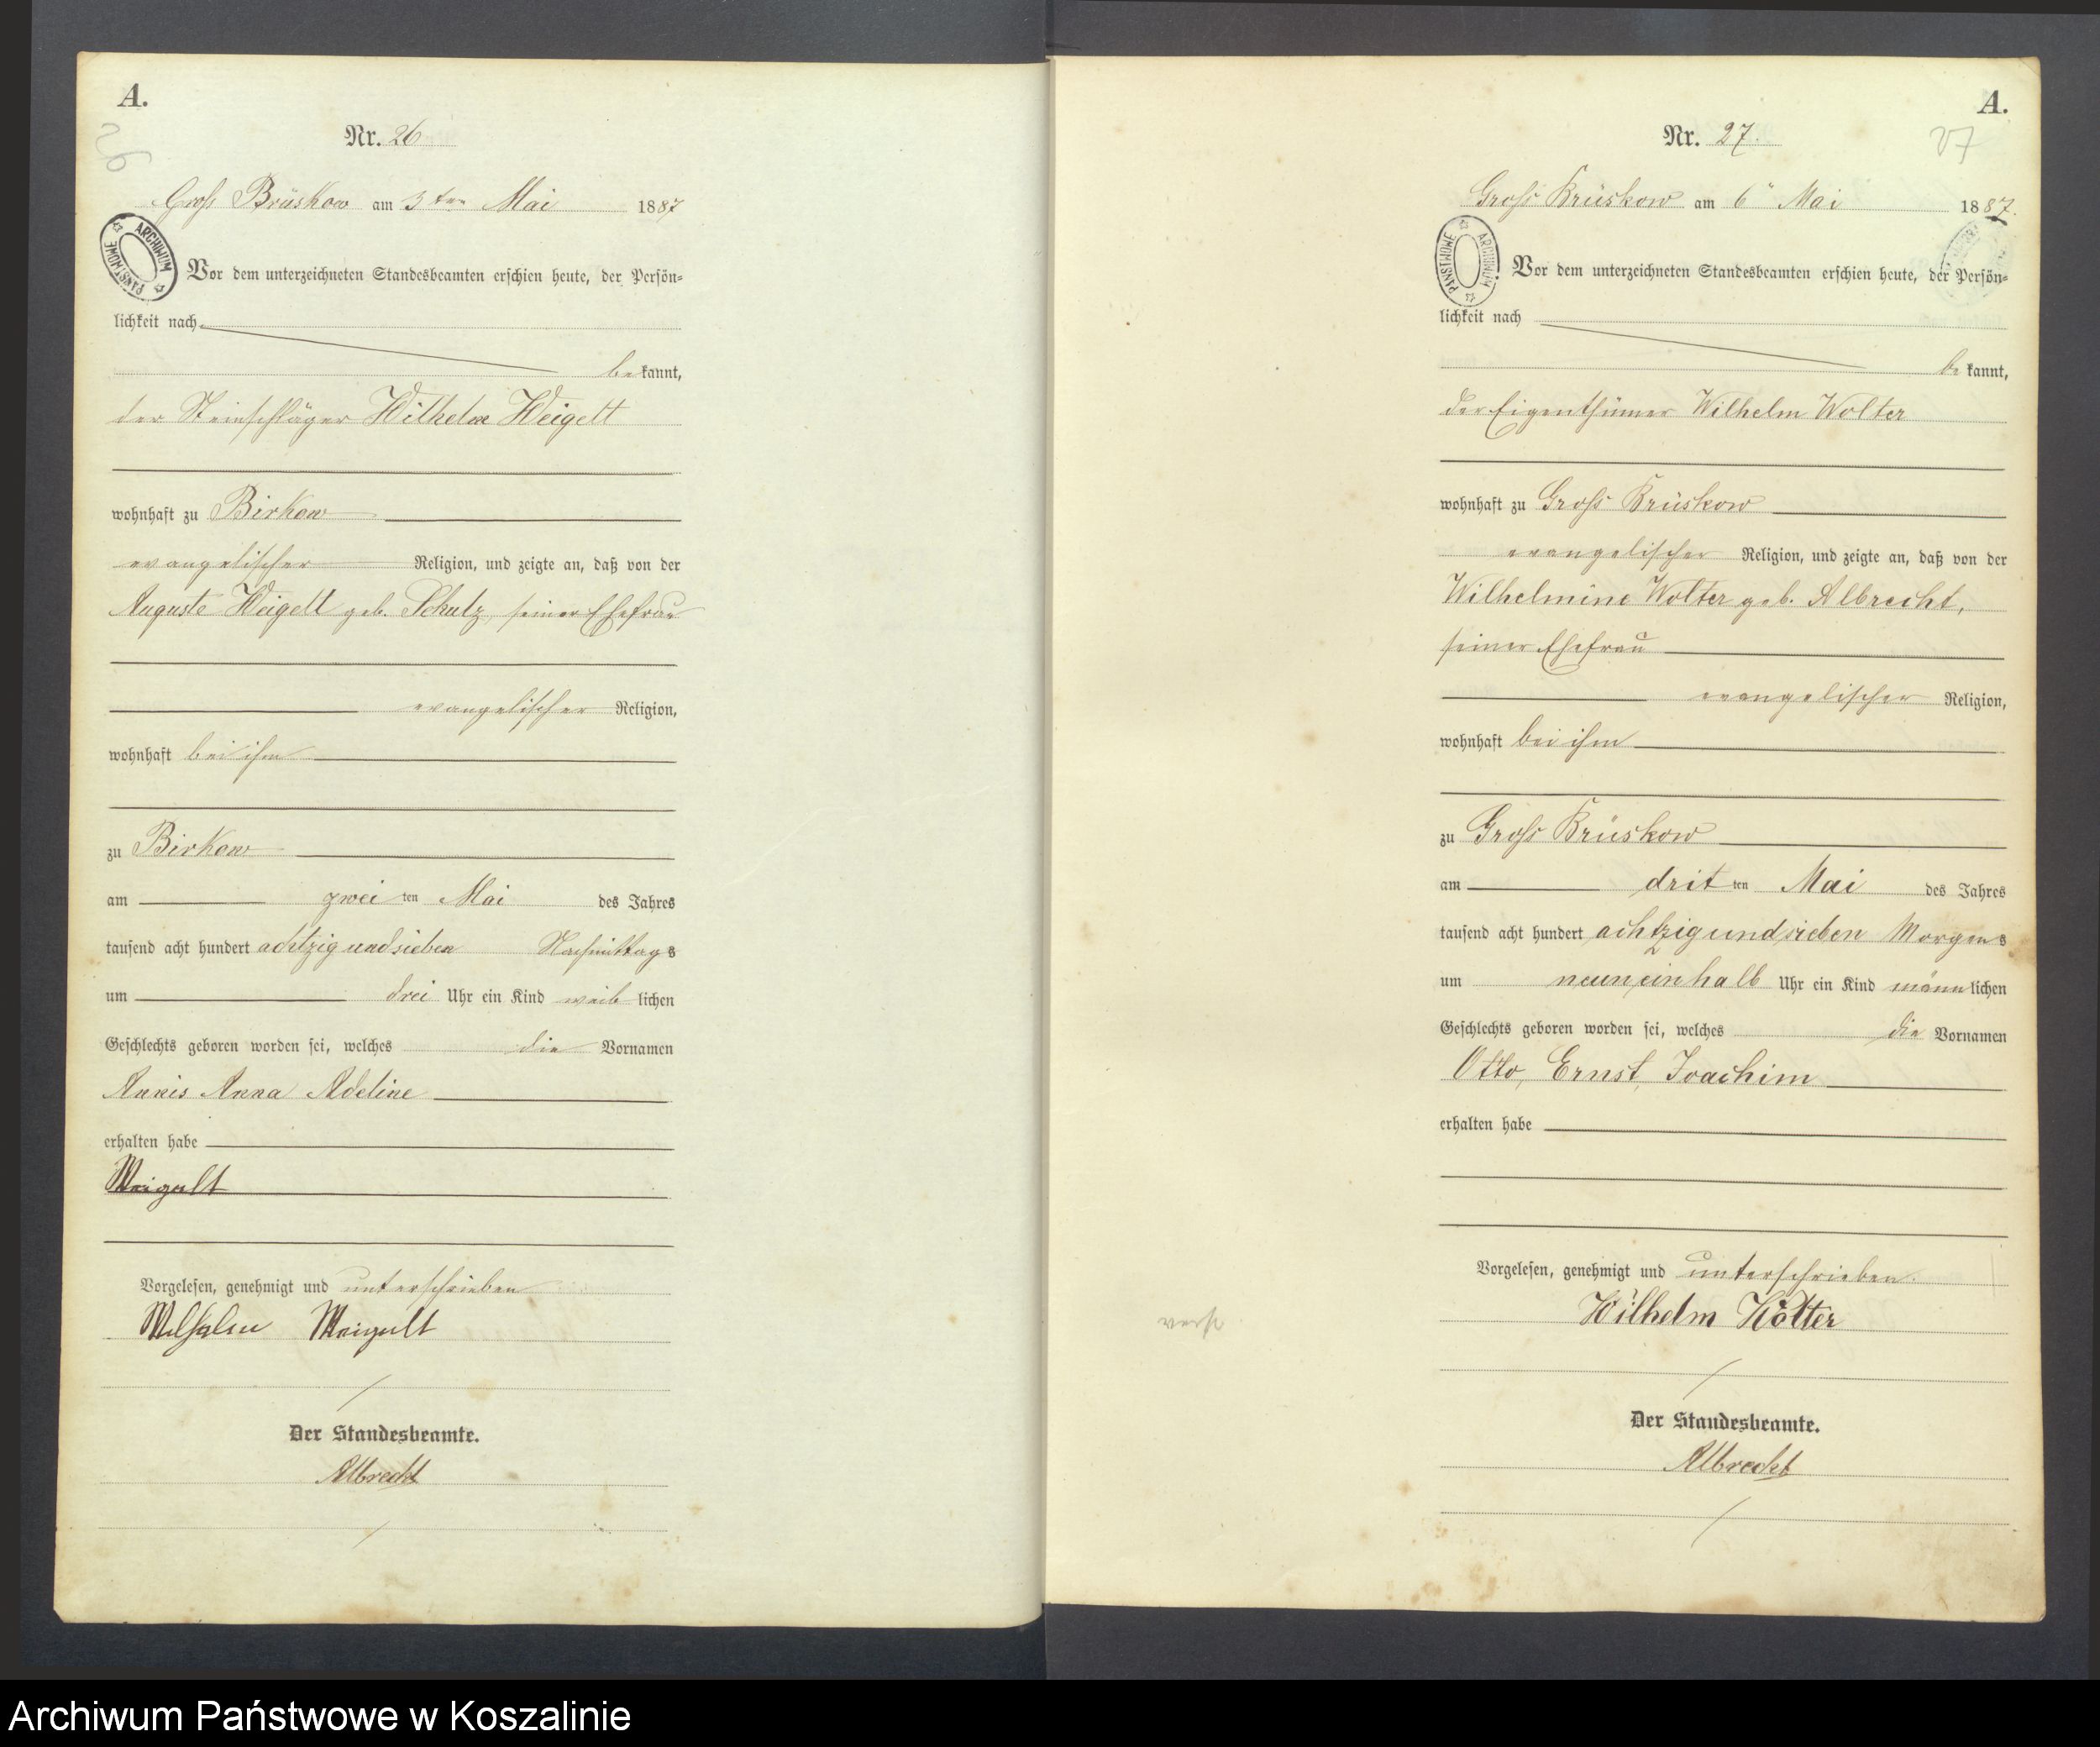 A.
26
Nr. 26
Groß Brüskow am 3ten Mai 1887
ARCHIWUM PAŃSTWOWE
Vor dem unterzeichneten Standesbeamten erschien heute, der Persön=
lichkeit nach
bekannt,
der Steinschläger Wilhelm Weigelt
wohnhaft zu Birkow
evangelischer Religion, und zeigte an, daß von der
Auguste Weigelt geb. Schulz, seiner Ehefrau
evangelischer Religion,
wohnhaft bei ihm
zu Birkow
am zweiten Mai des Jahres
tausend acht hundert achtzig und sieben Nachmittags
um drei Uhr ein Kind weiblichen
Geschlechts geboren worden sei, welches die Vornamen
Annis Anna Adeline
erhalten habe
Weigelt
Vorgelesen, genehmigt und unterschrieben
Wilhelm Weigelt
Der Standesbeamte.
Albrecht
A.
27
Nr. 27.
Groß Brüskow am 6ˮ Mai 1887.
ARCHIWUM PAŃSTWOWE
Vor dem unterzeichneten Standesbeamten erschien heute, der Persön=
lichkeit nach
bekannt,
der Eigenthümer Wilhelm Wolter
wohnhaft zu Groß Brüskow
evangelischer Religion, und zeigte an, daß von der
Wilhelmine Wolter geb. Albrecht,
seiner Ehefrau
evangelischer Religion,
wohnhaft bei ihm
zu Groß Brüskow
am dritten Mai des Jahres
tausend acht hundert achtzig und sieben Morgens
um neun einhalb Uhr ein Kind männlichen
Geschlechts geboren worden sei, welches die Vornamen
Otto, Ernst, Joachim
erhalten habe
Vorgelesen, genehmigt und unterschrieben.
Wilhelm Wolter
Der Standesbeamte.
Albrecht
Archiwum Państwowe w Koszalinie